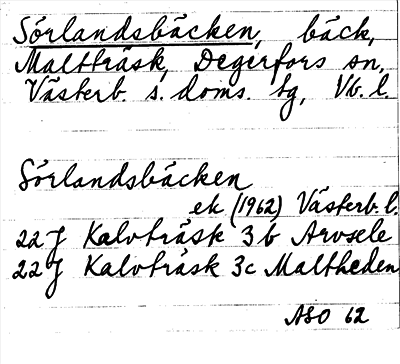 Sörlandsbäcken, bäck,
Malträsk, Degerfors sn.
Västerb. s. doms. tg, Vb. l.
Sörlandsbäcken
ek (1962) Västerb. l.
22 J Kalvträsk 3b Arvsele
22 J Kalvträsk 3c Maltheden
ASO 62